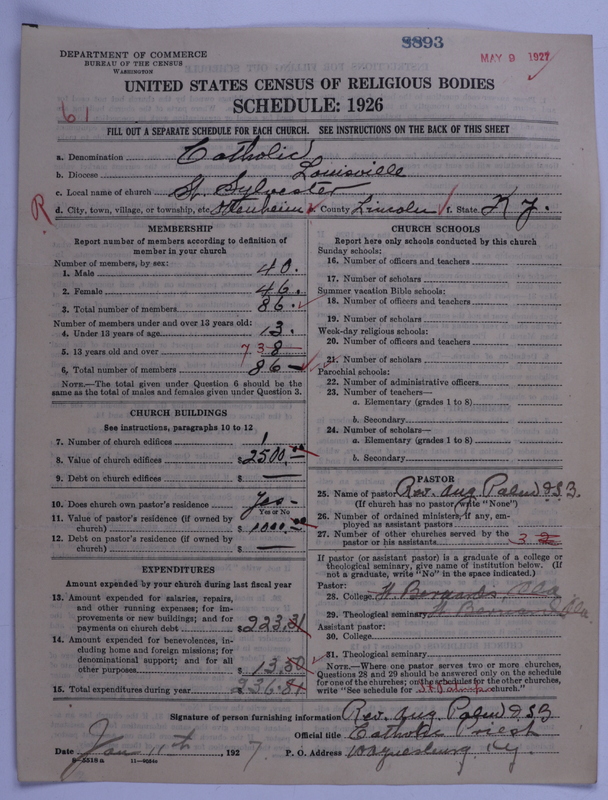 8893
MAY 9 1927
DEPARTMENT OF COMMERCE
BUREAU OF THE CENSUS
WASHINGTON
UNITED STATES CENSUS OF RELIGIOUS BODIES
SCHEDULE: 1926
61
FILL OUT A SEPARATE SCHEDULE FOR EACH CHURCH. SEE INSTRUCTIONS ON THE BACK OF THIS SHEET
a. Denomination Catholic
b. Diocese Louisville
c. Local name of church St. Sylvester
R
d. City, town, village, or township, etc. Ottenheim e. County Lincoln f. State Ky.
MEMBERSHIP
Report number of members according to definition of
member in your church
Number of members, by sex:
1. Male 40.
2. Female 46.
3. Total number of members 86.
Number of members under and over 13 years old:
4. Under 13 years of age 13.
5. 13 years old and over 73 8
6. Total number of members 86 —
NOTE.—The total given under Question 6 should be
same as the total of males and females given under Question 3.
CHURCH BUILDINGS
See instructions, paragraphs 10 to 12
7. Number of church edifices 1
8. Value of church edifices $2500.00
9. Debt on church edifices $ —
10. Does church own pastor's residence Yes -
Yes or No
11. Value of pastor's residence (if owned by
church) $1000.00
12. Debt on pastor's residence (if owned by
church) $ —
EXPENDITURES
Amount expended by your church during last fiscal year
13. Amount expended for salaries, repairs,
and other running expenses; for im-
provements or new buildings; and for
payments on church debt $223.31
14. Amount expended for benevolences, in-
cluding home and foreign missions; for
denominational support; and for all
other purposes $13.50
15. Total expenditures during year 236.81
CHURCH SCHOOLS
Report here only schools conducted by this church
Sunday schools:
16. Number of officers and teachers
17. Number of scholars
Summer vacation Bible schools:
18. Number of officers and teachers
19. Number of scholars
Week-day religious schools:
20. Number of officers and teachers
21. Number of scholars
Parochial schools:
22. Number of administrative officers
23. Number of teachers—
a. Elementary (grades 1 to 8)
b. Secondary
24. Number of scholars—
a. Elementary (grades 1 to 8)
b. Secondary
PASTOR
25. Name of pastor Rev. Aug. Palm O.S.B.
(If church has no pastor, write "None")
26. Number of ordained ministers, if any, em-
ployed as assistant pastors
27. Number of other churches served by the
pastor or his assistants 3
If pastor (or assistant pastor) is a graduate of a college or
theological seminary, give name of institution below. (If
not a graduate, write "No" in the space indicated.)
Pastor:
28. College St. Bernards Ala
29. Theological seminary St. Bernards Ala.
Assistant pastor:
30. College
31. Theological seminary
NOTE.—Where one pastor serves two or more churches,
Questions 28 and 29 should be answered only on the schedule
for one of the churches; on the schedules for the other churches,
write "See schedule for church."
Signature of person furnishing information Rev. Aug. Palm O.S.B
Official title Catholic Priest
Date Jan 11th, 1927. P. O. Address Waynesburg, Ky
8—5518a 11—9284a